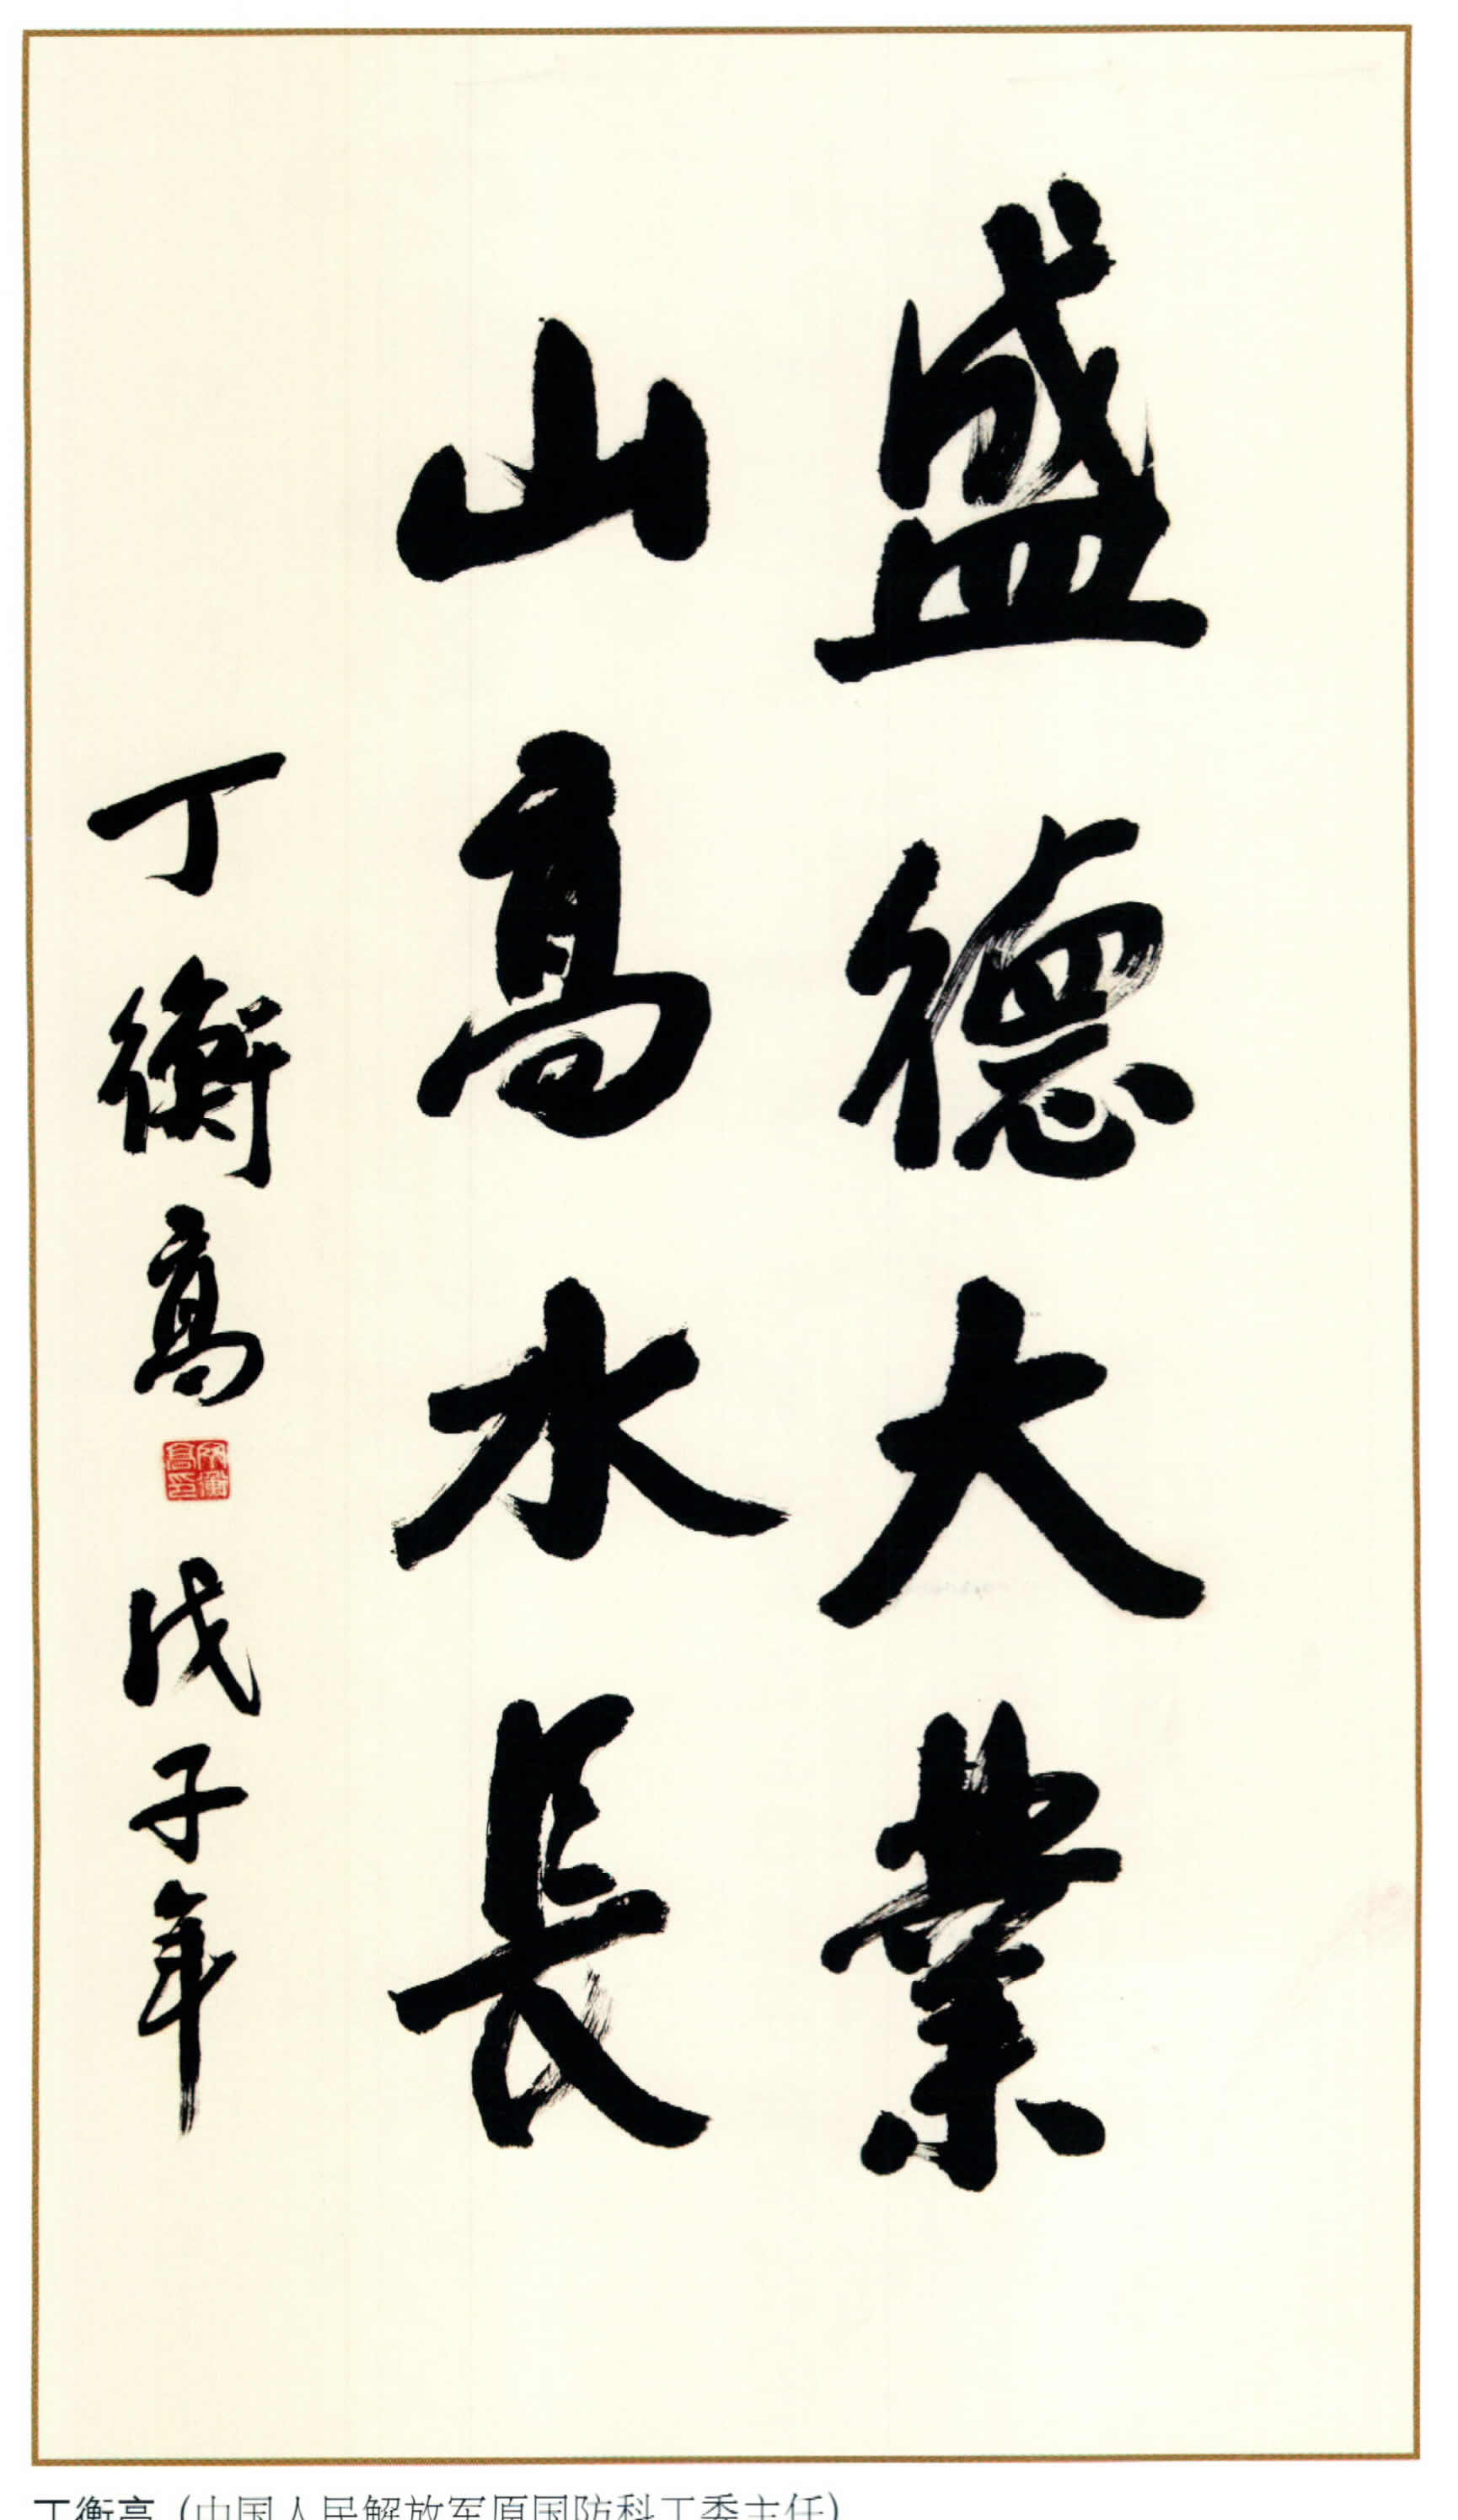 盛德大業
山高水長
丁衡高
戊子年
丁衡高（中国人民解放军原国防科工委主任）